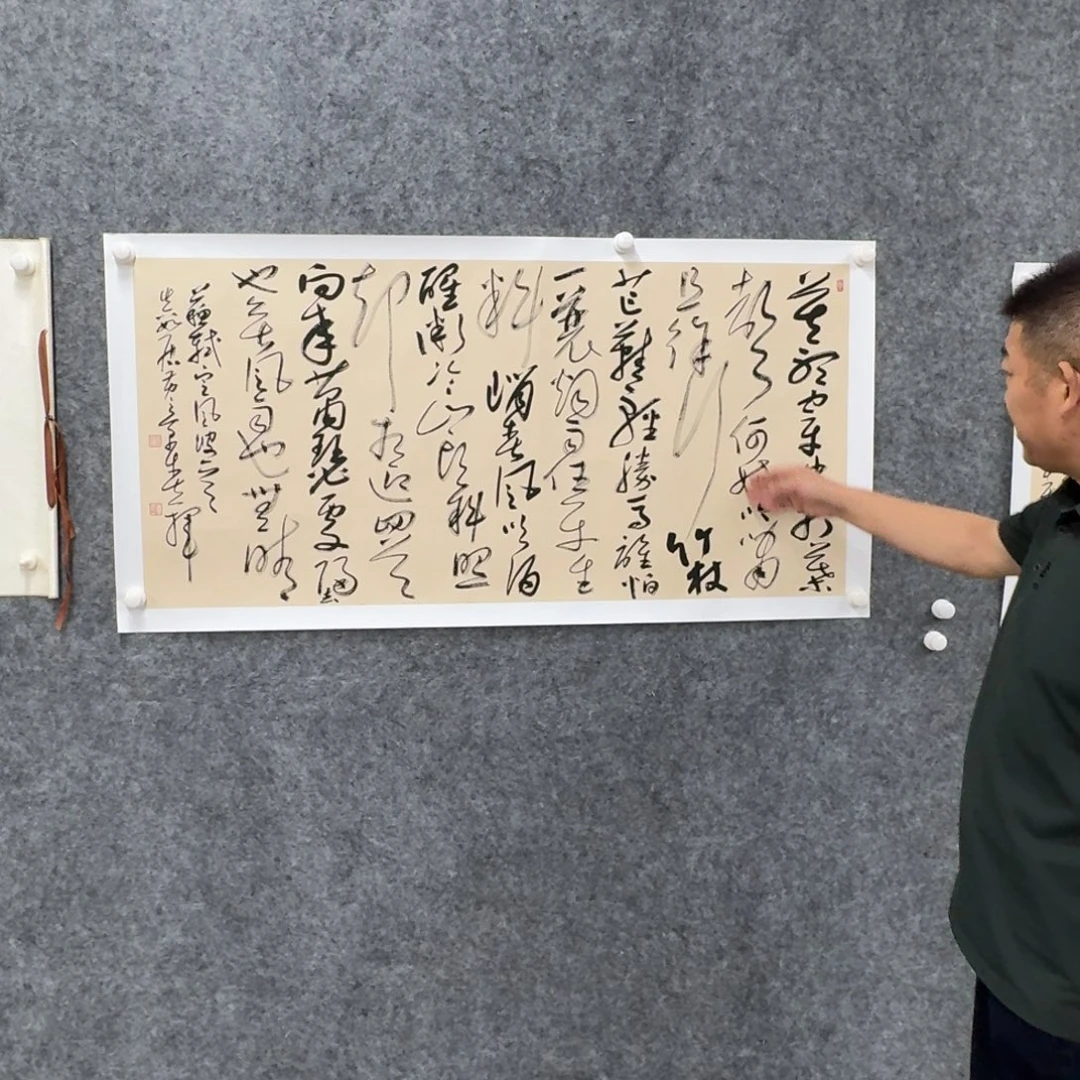 莫聽穿林打葉
聲何妨吟嘯
且徐行竹杖
芒鞋輕勝馬誰怕
一蓑烟雨任平生
料峭春風吹酒
醒微冷山頭斜照
却相迎回首
向來蕭瑟處歸去
也無風雨也無晴
蘇軾定風波